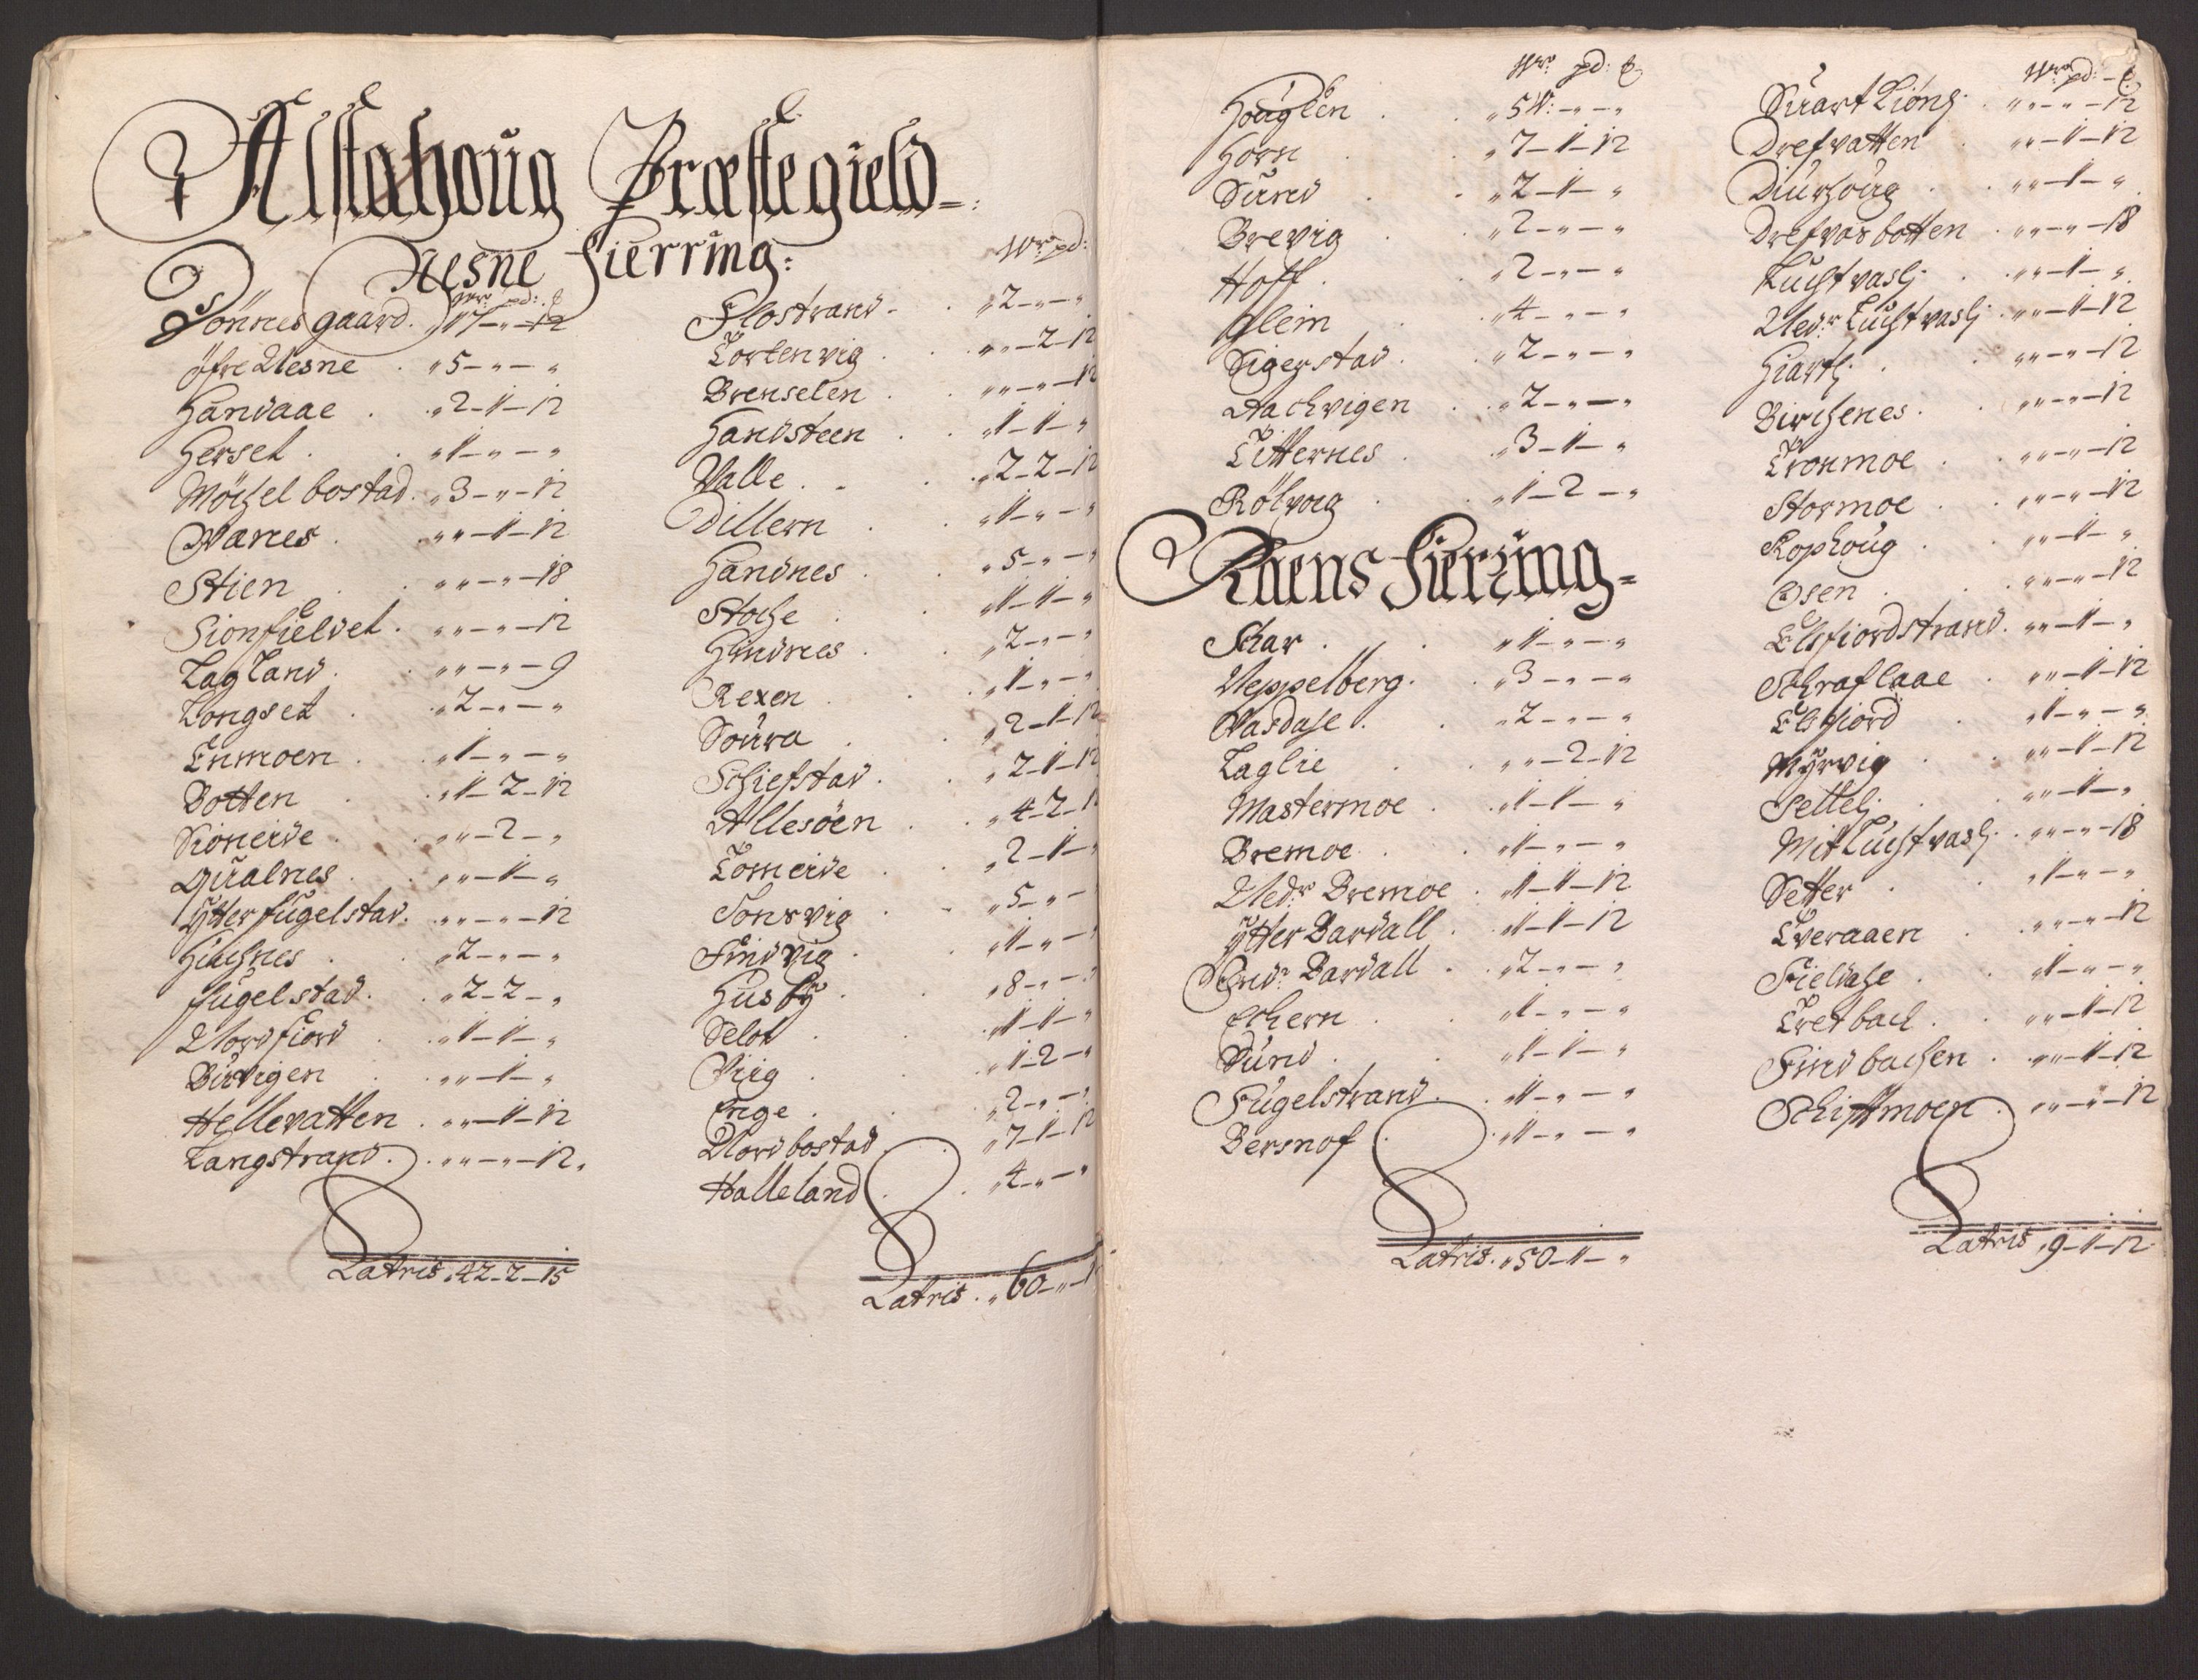 Alstahoug Præstegield
Nesne Fierring:
Wr: pd: ℔
Dönnes gaard. „17-„-12
öfre Nesne . „5-„-„
Handaae . „2-1-12
Herset . „1-„-„
Möchelbostad. „3-„-12
Vanes . „„-1-12
Stien . „„-„-18
Sionfieldet . „„-„-12
Lagland . „„-„-9
Longset . „2-„-„
Enmoen . „1-„-„
Botten . „1-2-12
Sioneide . „„-2-„
Qualnes . „„-1-„
Ytterfugelstad. „„-„-12
Huchnes . „2-„-„
fugelstad . „2-2-„
Nordfiord . „1-1-„
Birvigen . „„-1-„
Hellevatten . „„-1-12
Langstrand . „„-„-12
Latris „42-2-15
Wr: pd:
Flostrand . „2-„-„
Tortenvig . „„-2-12
Brenselen . „„-„-12
Handsteen . „1-1-„
Valle . „2-2-12
Dillern . „1-„-„
Handnes . „5-„-„
Stoche . „1-1-„
Hindnes . „2-„-„
Rexen . „1-„-„
Soura . „2-1-12
Schiefstad . „2-1-12
Allesöen . „4-2-1
Tomeide . „2-1-„
Sonsvig . „5-„-„
Findvig . „1-„-„
Husby . „8-„-„
Seloe . „1-1-„
Viig . „1-2-„
Enge . „2-„-„
Nordbostad . „7-1-12
Halleland . „4-„-„
Latris . „60-„-1
Wr: pd: ℔
Houglen . „5W:-„-„
Horn . „7-1-12
Sund . „2-1-„
Brevig . „2-„-„
Hoff . „2-„-„
Glein . „4-„-„
Sigerstad . „2-„-„
Aachvigen . „2-„-„
Titternes . „3-1-„
Rölvog . „1-2-„
Raens Fierring
Schar . „1-„-„
Neppelberg . „3-„-„
Vasdase . „2-„-„
Laglie . „„-2-12
Mastermoe . „1-1-„
Bremoe . „1-„-„
Nedr Bremoe . „1-1-12
Ytter Bardall . „1-1-12
Indr Bardall . „2-„-„
Echern . „1-„-„
Sund . „1-1-„
Fugelstrand . „1-„-„
Bersnof . „1-„-„
Latris . „50-1-„
Wr: pd: ℔
Suart Liöng . „„-„-12
Drefvatten . „„-1-12
Diurhoug . „„-1-„
Drefvasbotten . „„-„-18
Luchtvaslj . „„-1-„
Nedr Luchtvaslj . „„-1-12
Hiartlj . „„-„-12
Birchenes . „„-„-12
Tronmoe . „„-„-12
Stormoe . „„-„-12
Rophoug . „„-1-„
Osen . „„-„-12
Elsfiordstrand . „„-1-„
Schraflaae . „„-1-12
Elsfiord . „1-„-„
Myrvig . „„-1-12
Settelj . „„-1-„
Mit Luchtvaslj . „„-„-18
Setter . „1-„-„
Tveraaen . „„-„-12
Fieldase . „1-„-„
Tretbach . „„-1-12
Findbachen . „„-1-12
Schiftmoen . „„-„-12
Latris „9-1-12